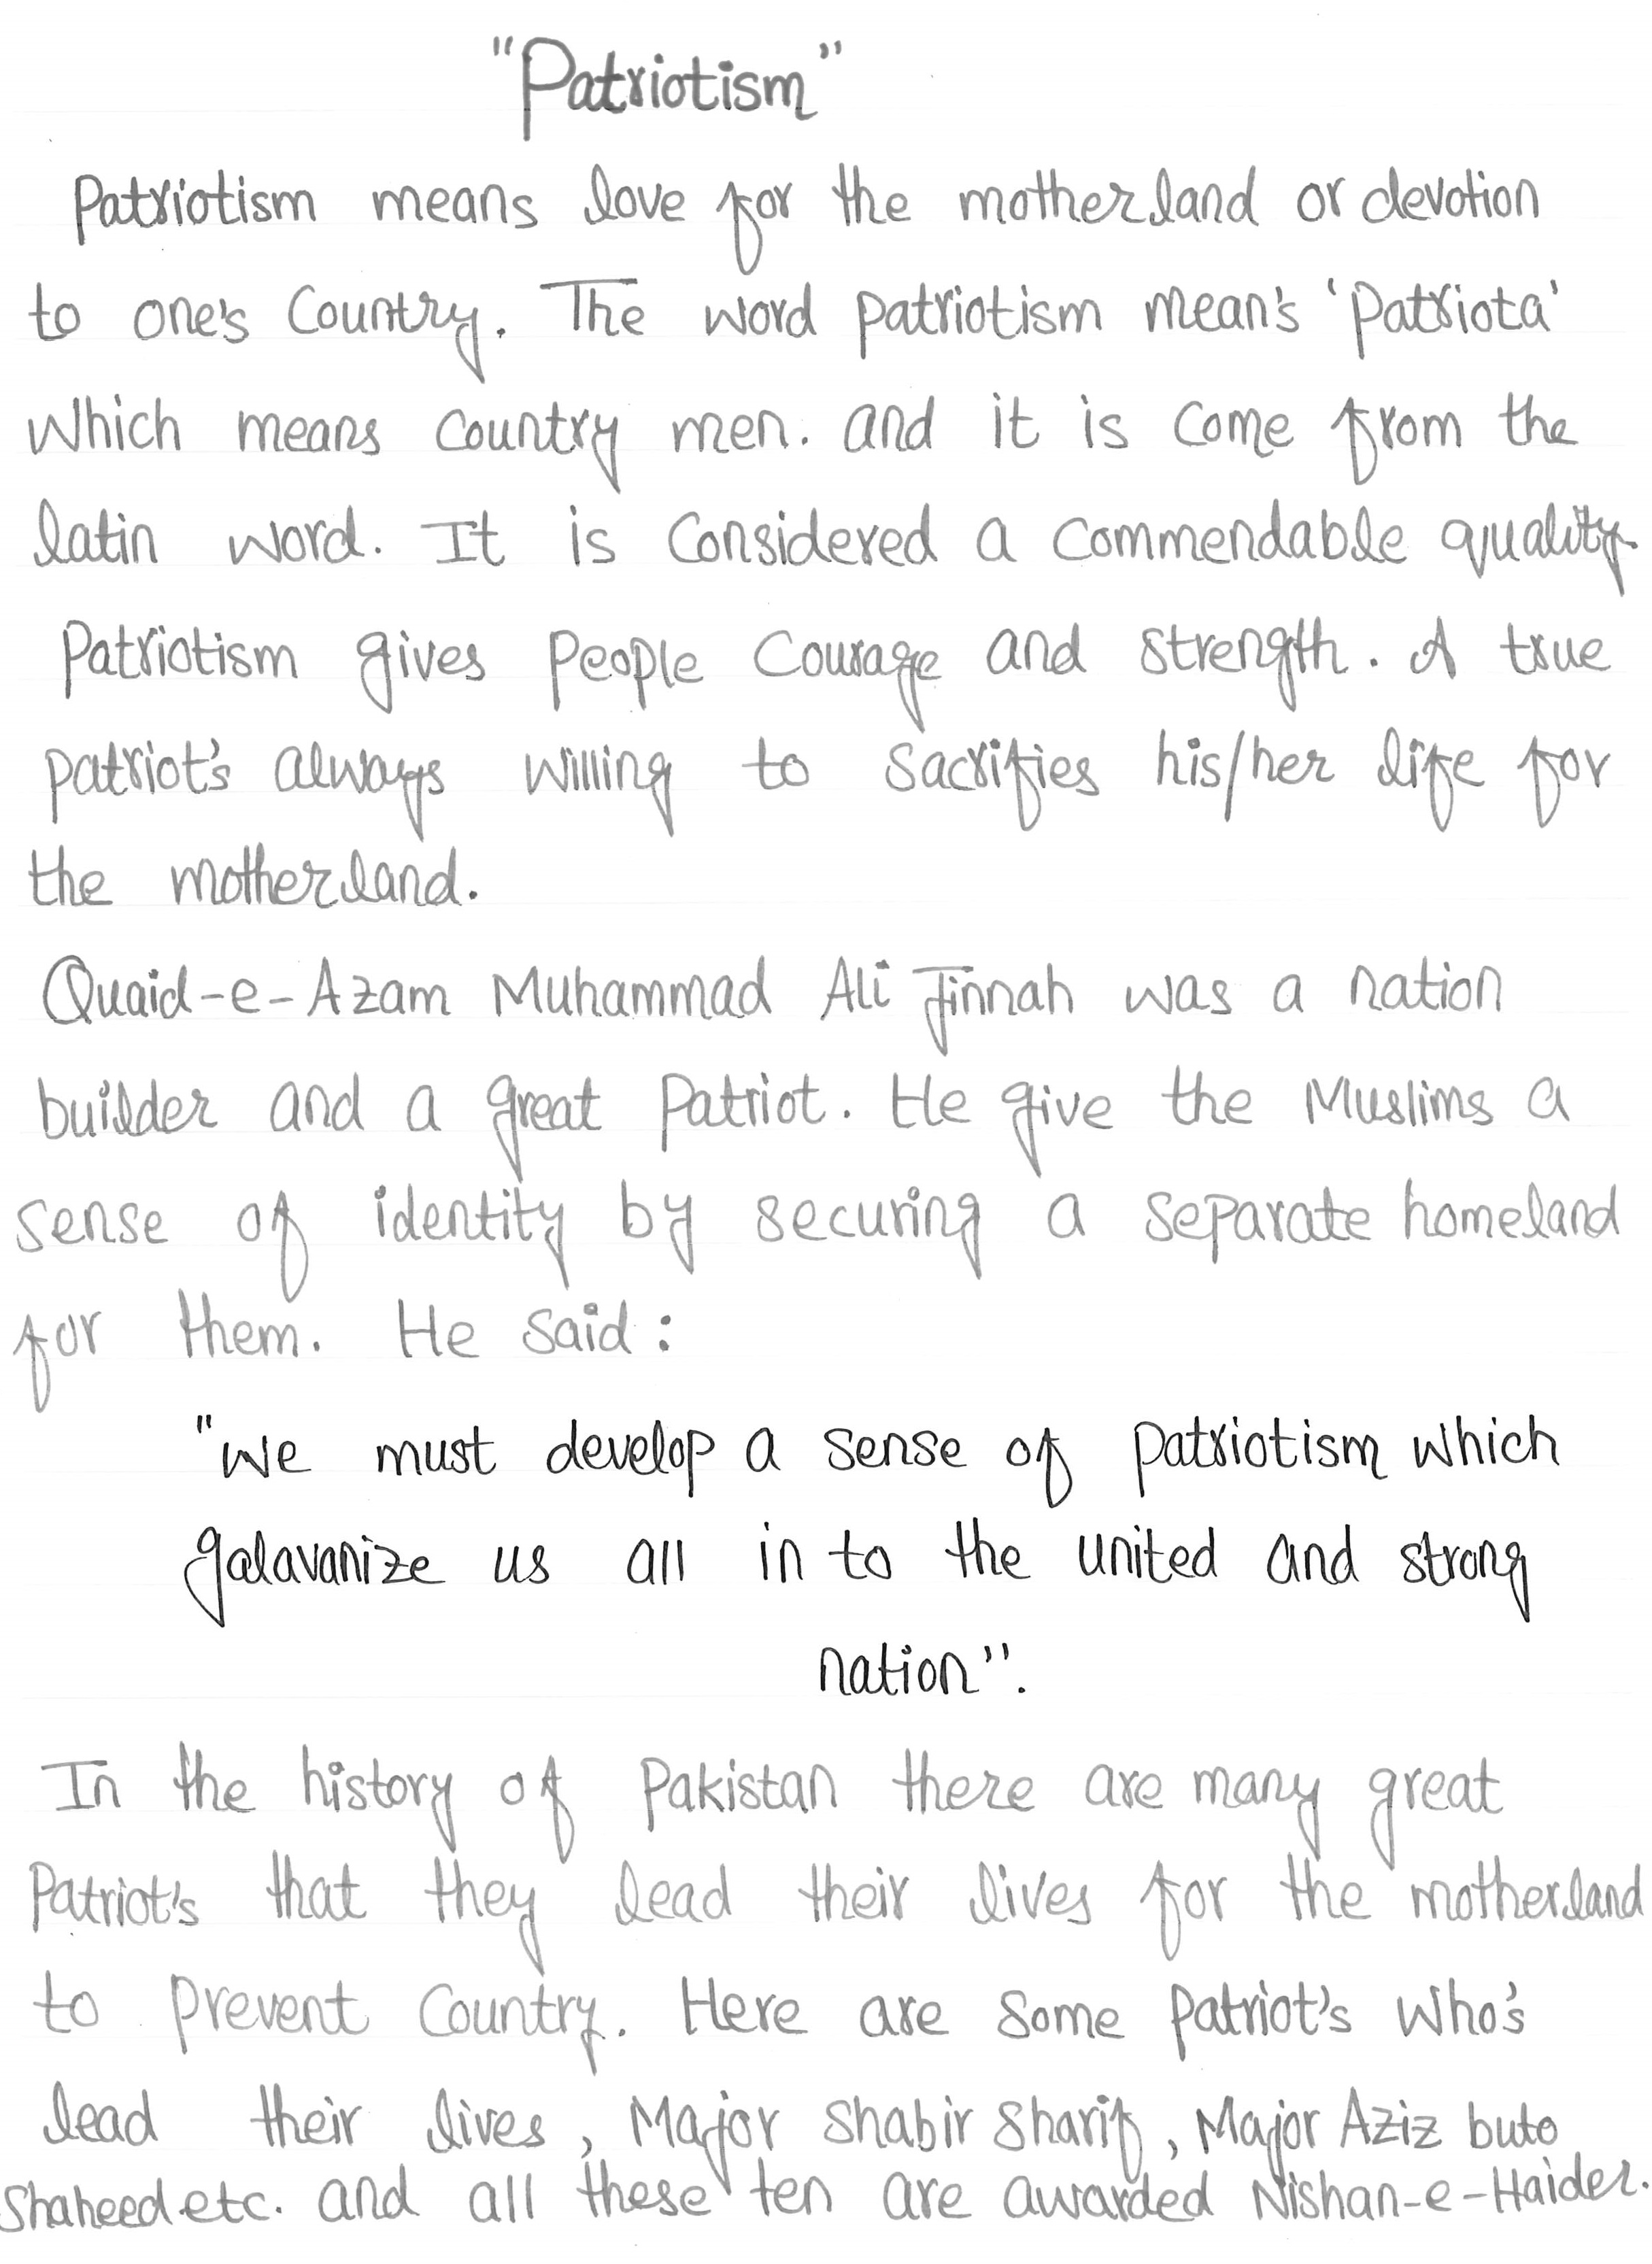 "Patriotism"
Patriotism means love for the motherland or devotion
to one's Country. The word patriotism mean's 'Patriota'
which means country men. and it is come from the
latin word. It is considered a commendable quality.
Patriotism gives people courage and strength. A true
patriot's always willing to sacrifies his/her life for
the motherland.
Quaid-e-Azam Muhammad Ali Jinnah was a nation
builder and a great Patriot. He give the Muslims a
sense of identity by securing a separate homeland
for them. He said:
"We must develop a sense of patriotism which
galavanize us all in to the united and strong
nation".
In the history of Pakistan there are many great
Patriot's that they lead their lives for the motherland
to prevent Country. Here are some patriot's who's
lead their lives, Major Shabir Sharif, Major Aziz buto
Shaheed.etc. and all these ten are awarded Nishan-e-Haider.